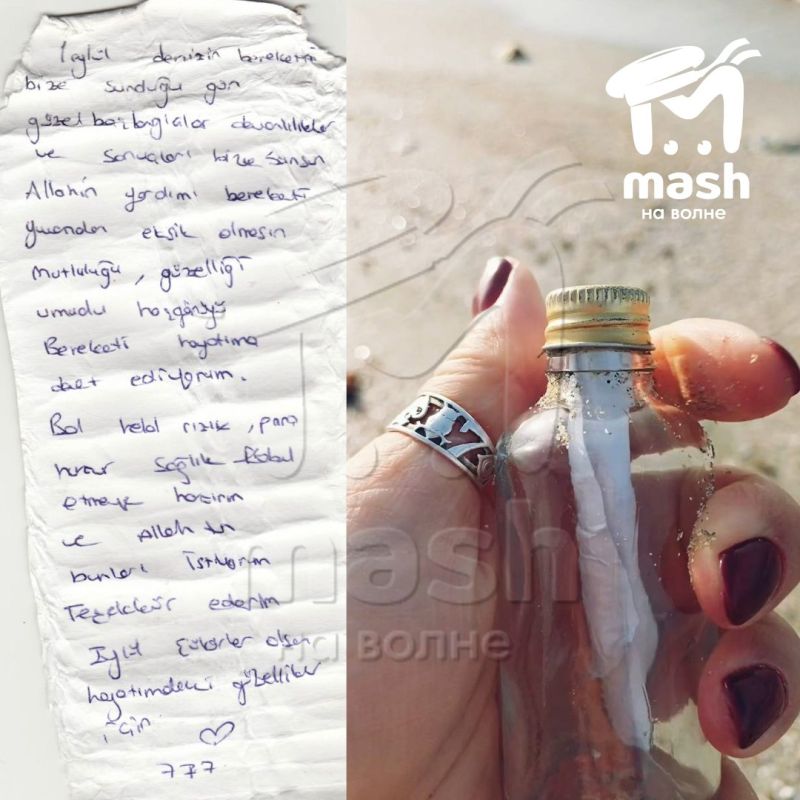 1 eylül denizin bereketini
bize sunduğu gün
güzel başlangıçlar
ve sonuçları bize sunsun
Allahın yardımı bereketi
eksik olmasın
mutluluğu, güzelliği
umudu hoşgörüyü
Bereketi hayatıma
davet ediyorum.
Bol helal rızık, para
huzur sağlık kabul
etmeye hazırım
ve Allah'tan
bunları istiyorum
Teşekkür ederim
şükürler olsun
hayatımdaki güzellikler
için ♡
777
mash
на волне
mash
на волне